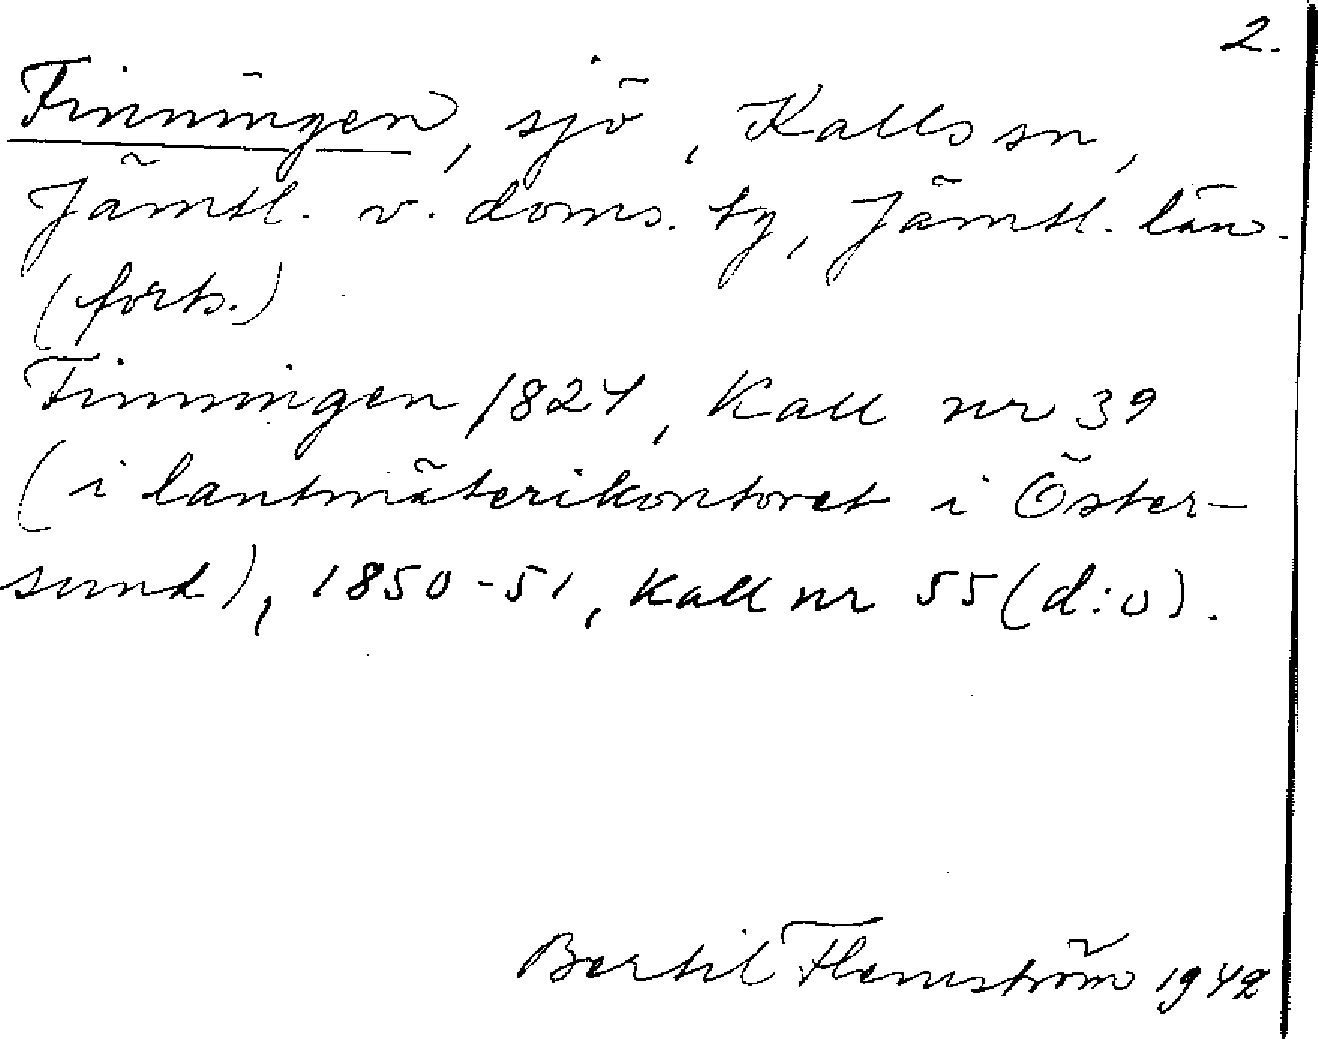 2.
Finningen, sjö, Kalls sn,
Jämtl. v. doms. tg, Jämtl. län.
(forts.)
Finningen 1824, Kall nr 39
(i lantmäterikontoret i Öster-
sund), 1850-51, Kall nr 55 (d:o).
Bertil Flemström 1942